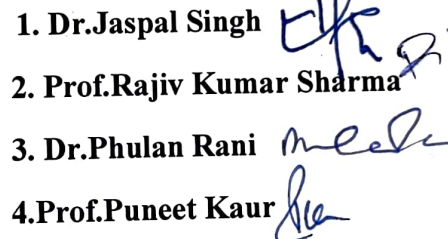 1. Dr.Jaspal Singh
2. Prof.Rajiv Kumar Sharma
3. Dr.Phulan Rani
4.Prof.Puneet Kaur